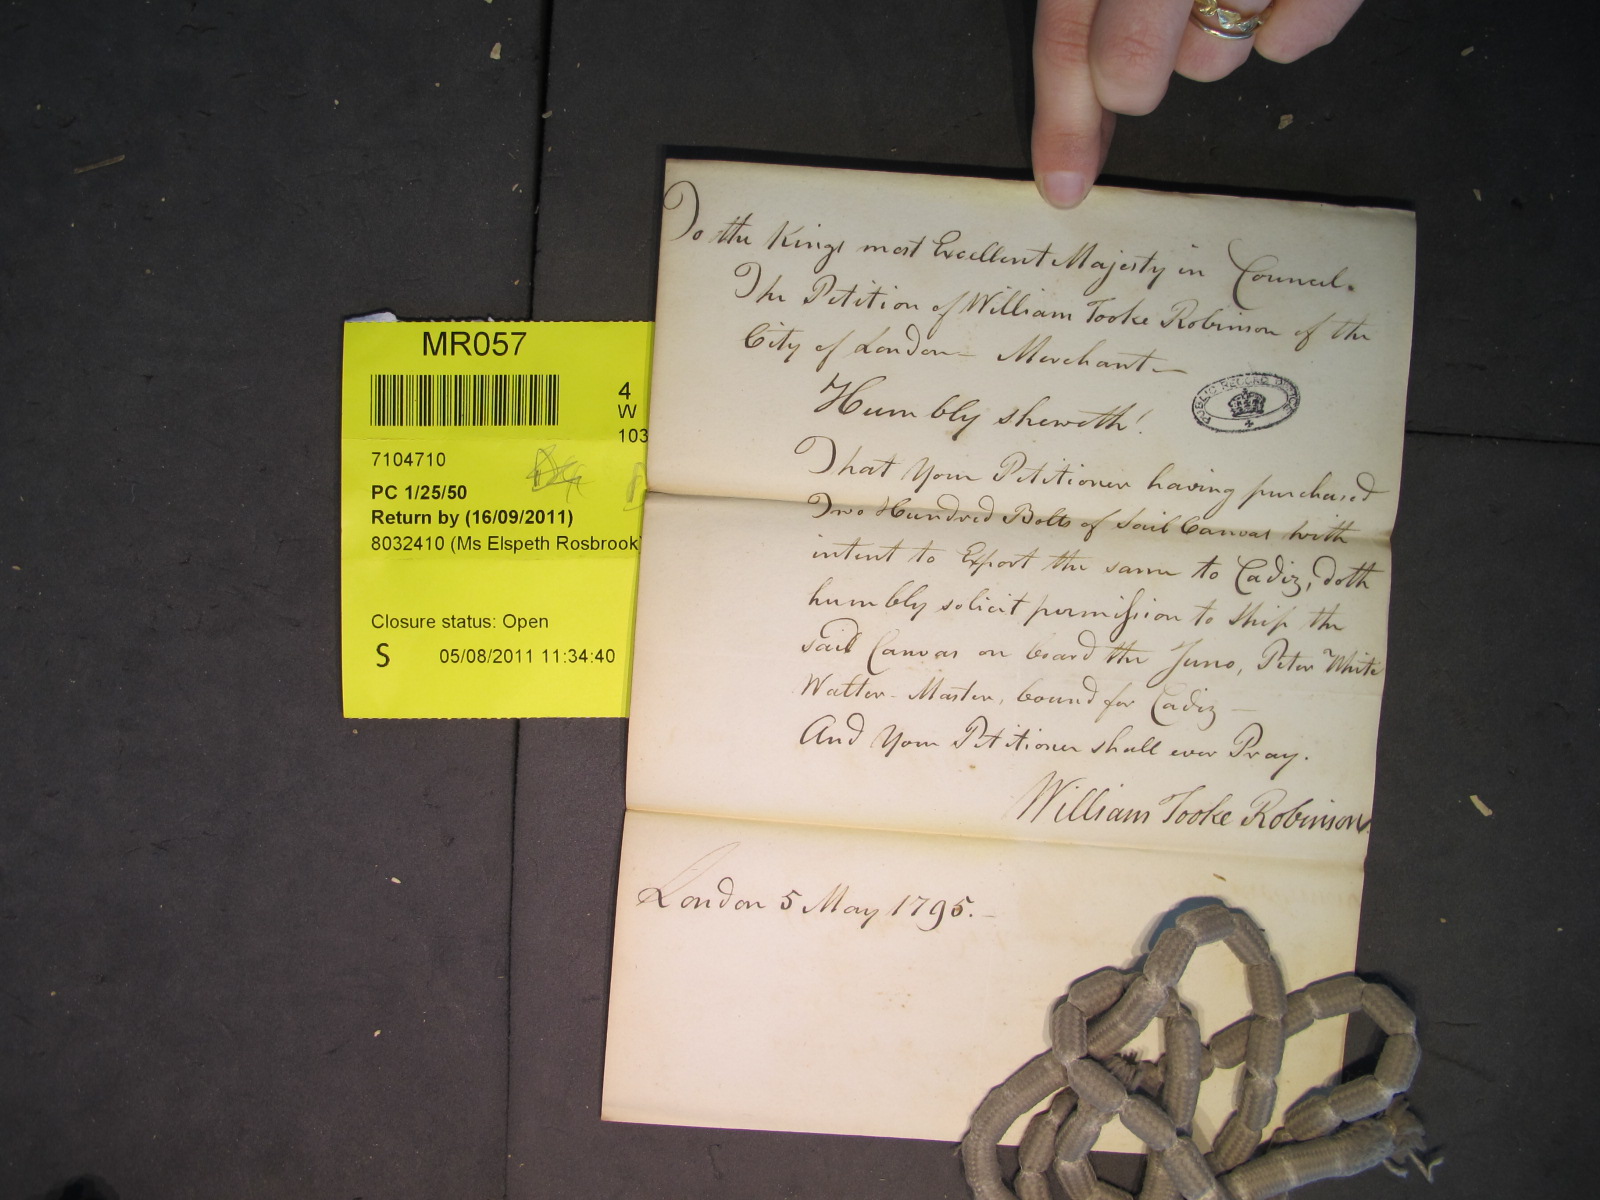 To the Kings most Excellent Majesty in Council.
The Petition of William Tooke Robinson of the
City of London Merchant
Humbly sheweth!
That Your Petitioner having purchased
Two Hundred Bolts of Sail Canvas with
intent to Export the same to Cadiz, doth
humbly solicit permission to ship the
said Canvas on board the Juno, Peter White
Walter Master, bound for Cadiz
And Your Petitioner shall ever Pray.
William Tooke Robinson
London 5 May 1795.
PUBLIC RECORD OFFICE
MR057
4
W
103
7104710
PC 1/25/50
Return by (16/09/2011)
8032410 (Ms Elspeth Rosbrook)
Closure status: Open
S 05/08/2011 11:34:40